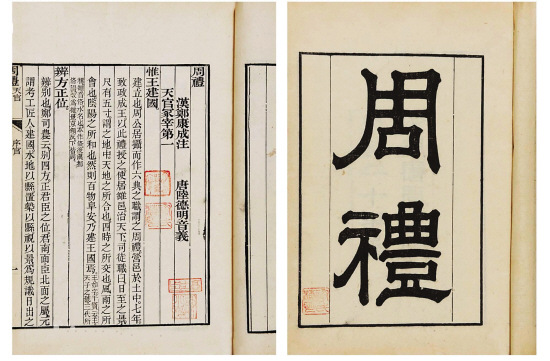 周禮
漢鄭康成注 唐陸德明音義
天官冢宰第一
惟王建國
建立也周公居攝而作六典之職謂之周禮營邑於土中七年
致政成王以此禮授之使居雒邑治天下司徒職曰日至之景
尺有五寸謂之地中天地之所合也四時之所交也風雨之所
會也陰陽之所和也然則百物阜安乃建王國焉
辨方正位
辨別也鄭司農云別四方正君臣之位君南面臣北面之屬元
謂考工匠人建國水地以縣置槷以縣視以景爲規識日出之
周禮 天官 序官 一
周禮